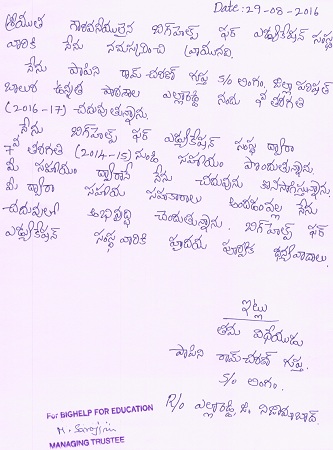 Date:-29-08-2016
శ్రీయుత గౌరవనీయులైన బిగ్‌హెల్ప్ ఫర్ ఎడ్యుకేషన్ సంస్థ
వారికి నేను నమస్కరించి వ్రాయునది.
నేను పాపిని రామ్‌చరణ్ గుప్త S/o లింగం. జిల్లా పరిషత్
బాలుర ఉన్నత పాఠశాల ఎల్లారెడ్డి నందు తరగతి
(2016-17) చదువుతున్నాను.
నేను బిగ్‌హెల్ప్ ఫర్ ఎడ్యుకేషన్ సంస్థ ద్వారా
7వ తరగతి (2014-15) నుండి సహాయం పొందుతున్నాను.
మీ సహాయం ద్వారానే నేను చదువును కొనసాగిస్తున్నాను.
మీ ద్వారా సహాయ సహకారాలు అందడంవల్ల నేను
చదువులో అభివృద్ధి చెందుతున్నాను. బిగ్‌హెల్ప్ ఫర్
ఎడ్యుకేషన్ సంస్థ వారికి హృదయ పూర్వక ధన్యవాదాలు.
ఇట్లు
తమ విధేయుడు
పాపిని రామ్‌చరణ్ గుప్త.
S/o లింగం.
R/o ఎల్లారెడ్డి, జి. నిజామాబాద్.
For BIGHELP FOR EDUCATION
MANAGING TRUSTEE